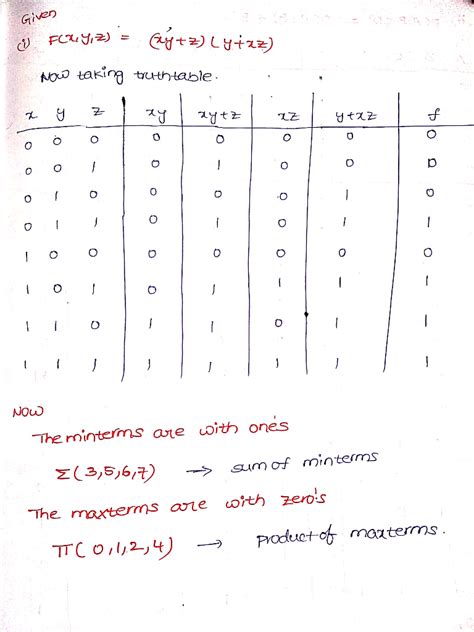 Given
(i) F(x,y,z) = (xy+z) (y+xz)
Now taking truthtable.
x y z xy xy+z xz y+xz f
0 0 0 0 0 0 0 0
0 0 1 0 1 0 0 0
0 1 0 0 0 0 1 0
0 1 1 0 1 0 1 1
1 0 0 0 0 0 0 0
1 0 1 0 1 1 1 1
1 1 0 1 1 0 1 1
1 1 1 1 1 1 1 1
Now
The minterms are with one's
Σ(3,5,6,7) → sum of minterms
The maxterms are with zero's
π(0,1,2,4) → product of maxterms.